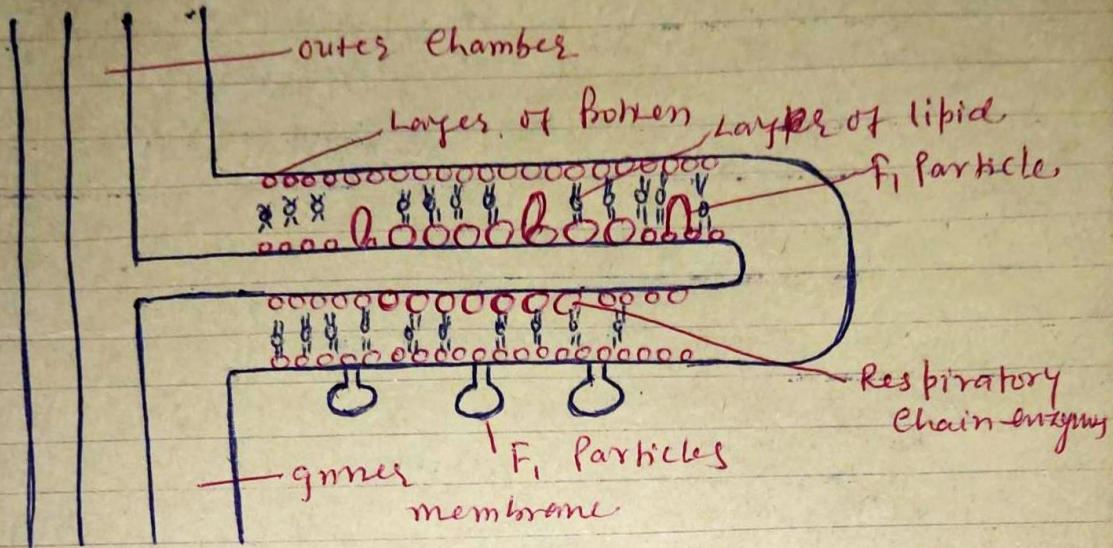 outer Chamber
Layer of Protien
Layer of lipid
F₁ Particle
Respiratory
Chain enzymes
F₁ Particles
inner
membrane